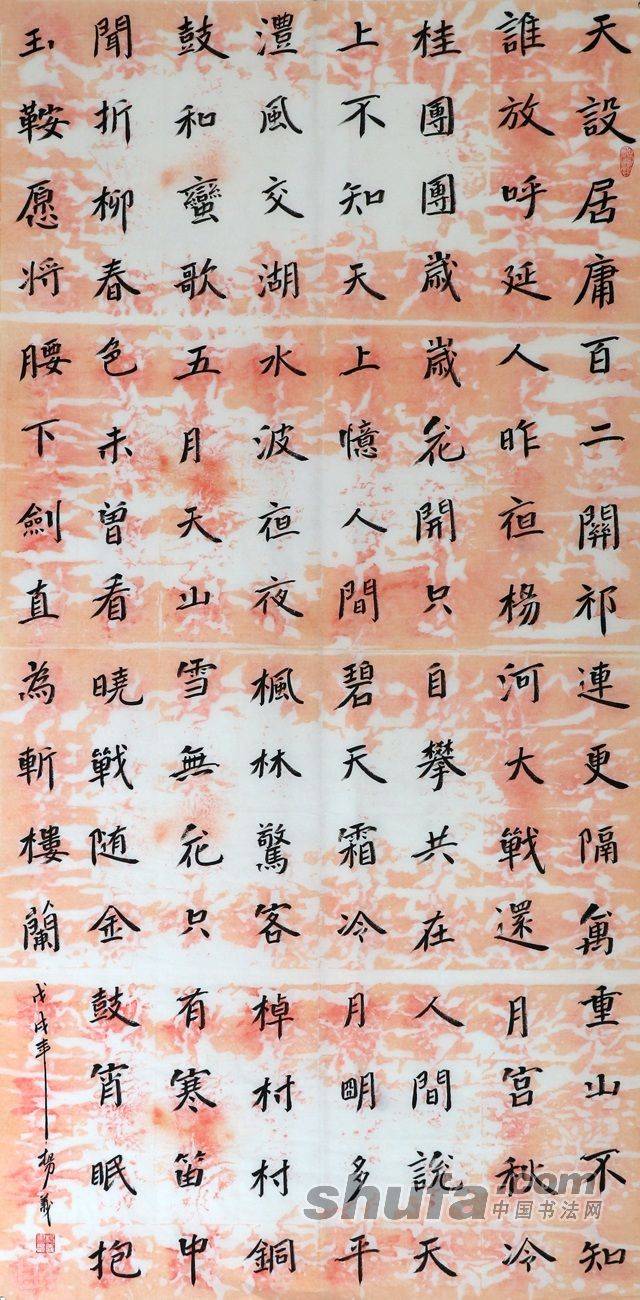 天設居庸百二關祁連更隔萬重山不知
誰放呼延人昨亱楊河大戰還月宮秋冷
桂團團歲歲花開只自攀共在人間說天
上不知天上憶人間碧天霜冷月眀多平
澧風交湖水波亱夜楓林驚客棹村村銅
鼓和蠻歌五月天山雪無花只有寒笛中
聞折柳春色未曾看曉戰随金鼓宵眠抱
玉鞍愿将腰下劍直為斬樓蘭
戊戌年 楊
shufa.com
中国书法网